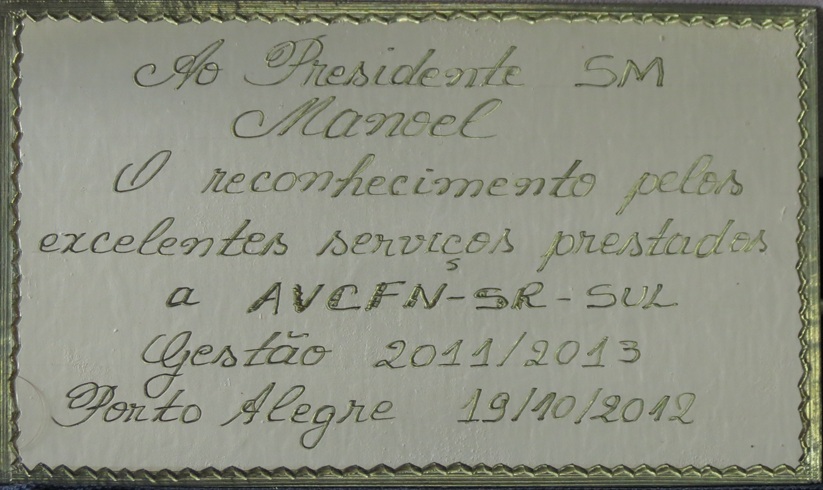 Ao Presidente SM
Manoel
O reconhecimento pelos
excelentes serviços prestados
a AVCFN-SR-SUL
Gestão 2011/2013
Porto Alegre 19/10/2012